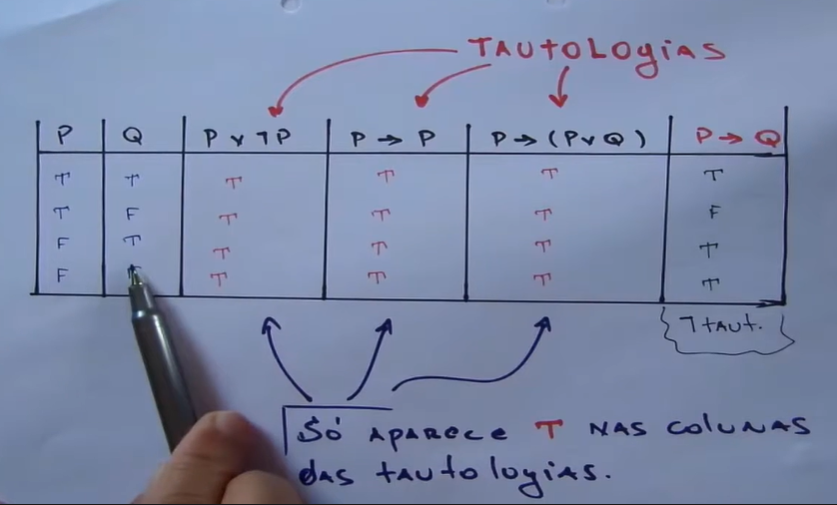 TAUTOLOGIAS
P Q P ∨ ¬P P → P P → (P ∨ Q) P → Q
T T T T T T
T F T T T F
F T T T T T
F T T T T
¬ TAUT.
SÓ APARECE T NAS COLUNAS
DAS TAUTOLOGIAS.